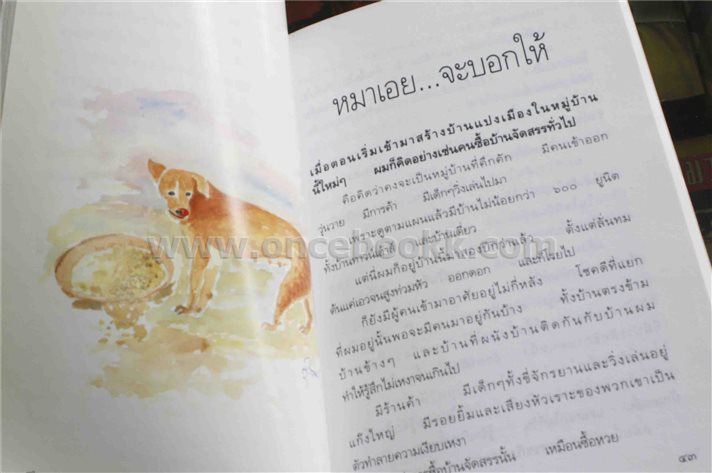 หมาเอย...จะบอกให้
เมื่อตอนเริ่มเข้ามาสร้างบ้านแปงเมืองในหมู่บ้าน
นี้ใหม่ๆ ผมก็คิดอย่างเช่นคนซื้อบ้านจัดสรรทั่วไป
คือคิดว่าคงจะเป็นหมู่บ้านที่คึกคัก มีคนเข้าออก
วุ่นวาย มีการค้า มีเด็กๆวิ่งเล่นไปมา
เพราะดูตามแผนแล้วมีบ้านไม่น้อยกว่า ๖๐๐ ยูนิต
ทั้งบ้านทาวน์เฮ้าส์ และบ้านเดี่ยว
www.oncebookk.com
แต่นี่ผมก็อยู่บ้านนี้มาสองปีกว่าแล้ว ตั้งแต่ลั่นทม
ต้นแค่เอวจนสูงท่วมหัว ออกดอก และก็โรยไป
ก็ยังมีผู้คนเข้ามาอาศัยอยู่ไม่กี่หลัง โชคดีที่แยก
ที่ผมอยู่นั้นพอจะมีคนมาอยู่กันบ้าง ทั้งบ้านตรงข้าม
บ้านข้างๆ และบ้านที่ผนังบ้านติดกันกับบ้านผม
ทำให้รู้สึกไม่เหงาจนเกินไป
มีร้านค้า มีเด็กๆทั้งขี่จักรยานและวิ่งเล่นอยู่
แก๊งใหญ่ มีรอยยิ้มและเสียงหัวเราะของพวกเขาเป็น
ตัวทำลายความเงียบเหงา
ซื้อบ้านจัดสรรนั้น เหมือนซื้อหวย
๔๓